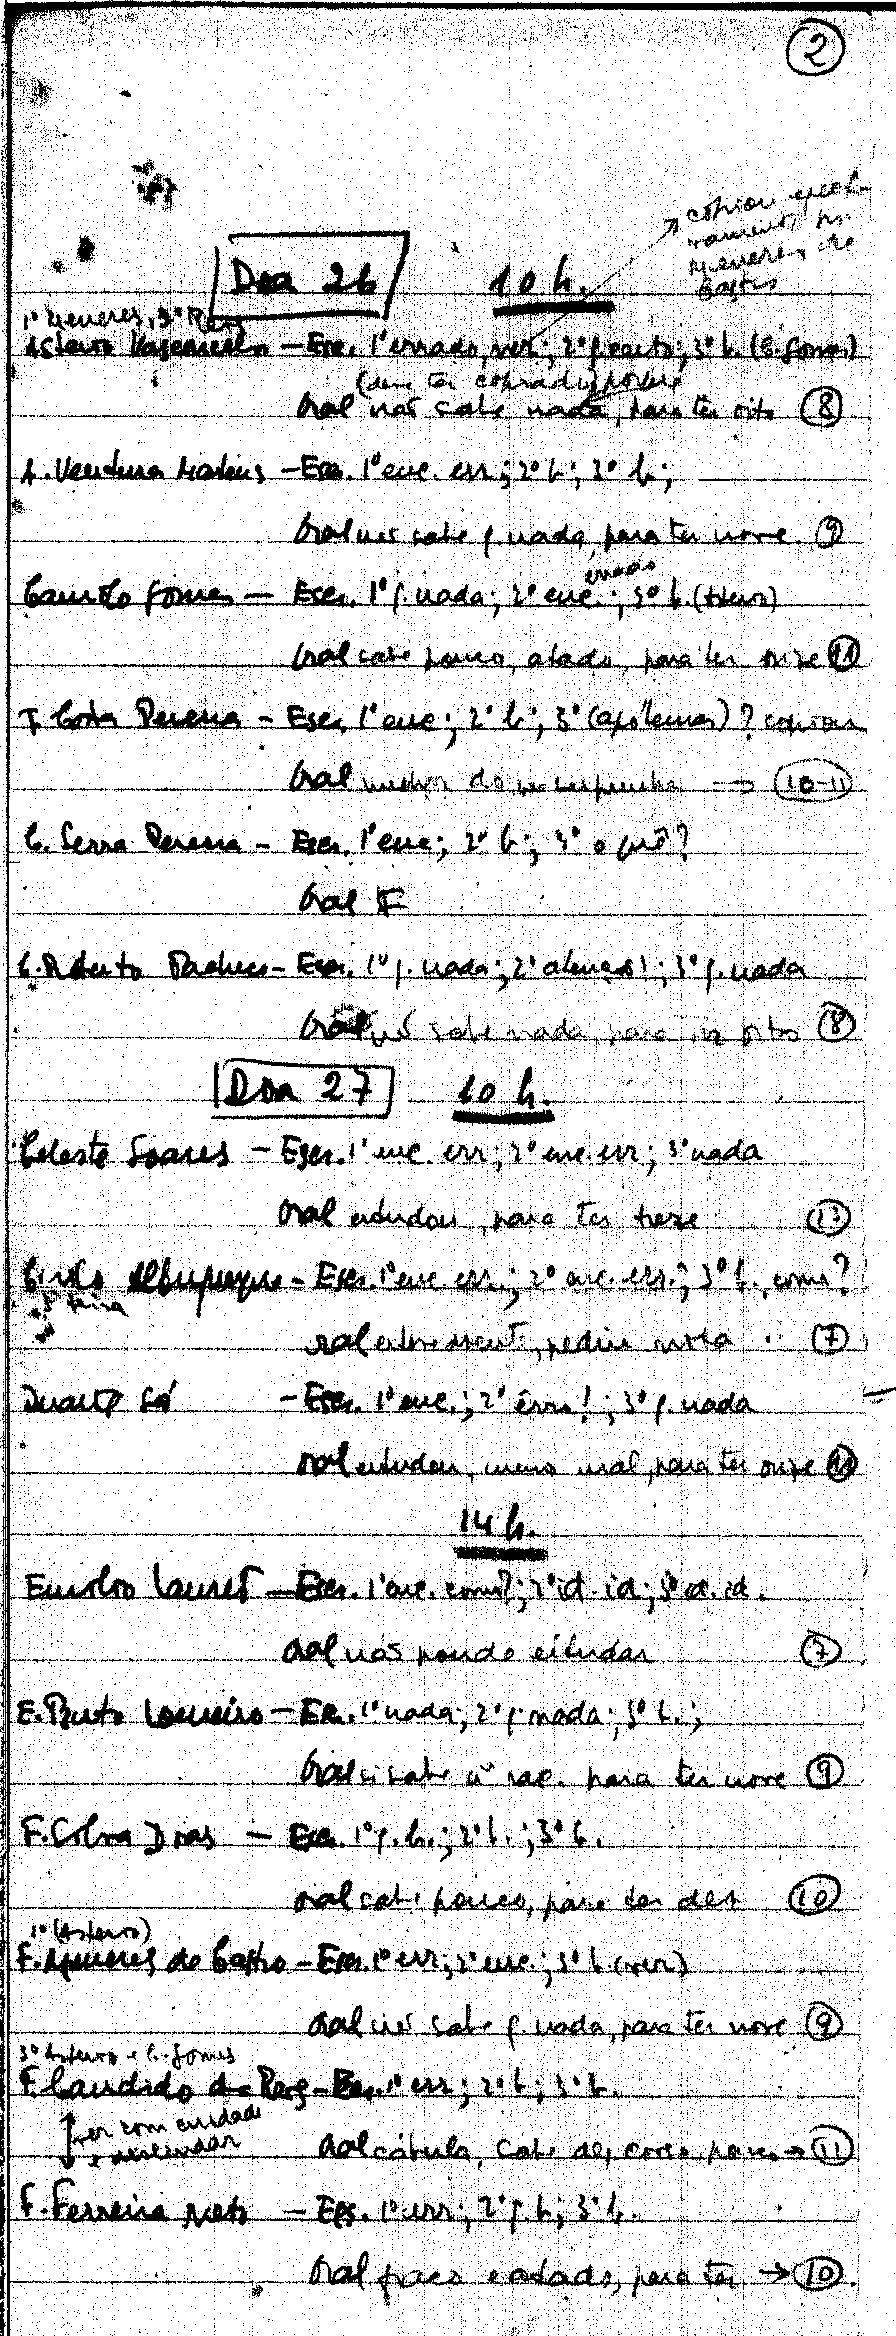 2
copiou
Menezes de
Castro
Dia 26 10 h.
1º Menezes, 3º Reis
Asterio Vasconcelos - Esc. 1º errado, ver; 2º p. certo; 3º b. (C. Gomes)
(deve ter copiado)
Oral não sabe nada, para ter oito 8
A. Ventura Mateus - Esc. 1º enc. err.; 2º b; 3º b;
Oral não sabe p. nada, para ter nove 9
errado
Camilo Gomes - Escr. 1º p. nada; 2º enc.; 3º b.
Oral sabe pouco, atado, para ter onze 11
Costa Pereira - Escr. 1º enc; 2º b; 3º (apótemas)? copiou
Oral melhor do 10-11
C. Serra Pereira - Escr. 1º enc; 2º b; 3º o quê?
Oral F
C. Alberto Pacheco - Escr. 1º p. nada; 2º; 3º p. nada
Oral não sabe nada, para oito 8
Dia 27 10 h.
Celeste Soares - Escr. 1º enc. err; 2º enc. err; 3º nada
Oral estudou, para ter treze 13
Albuquerque - Escr. 1º enc. err.; 2º enc. err.; 3º b., como?
Oral, pediu nota 7
Duarte Sá - Escr. 1º enc.; 2º erro!; 3º p. nada
Oral estudou, menos mal, para ter onze 11
14 h.
Emilio - Escr. 1º enc. como?; 2º id. id; 3º id. id.
Oral não pôude estudar 7
E. Brito Loureiro - Esc. 1º nada; 2º p. nada; 3º b.;
Oral para ter nove 9
F. Dias - Esc. 1º p. b.; 2º b.; 3º b.
Oral sabe pouco, para ter dez 10
1º (Asterio)
F. Menezes de Castro - Esc. 1º err; 2º enc.; 3º b (ver)
Oral não sabe p. nada, para ter nove 9
3º Asterio e C. Gomes
F. Candido dos Reis - Esc. 1º err; 2º b; 3º b.
ver com cuidado
Oral cábula, sabe 11
F. Ferreira Neto - Esc. 1º err; 2º p. b; 3º b.
Oral fraco e atado, para ter → 10.